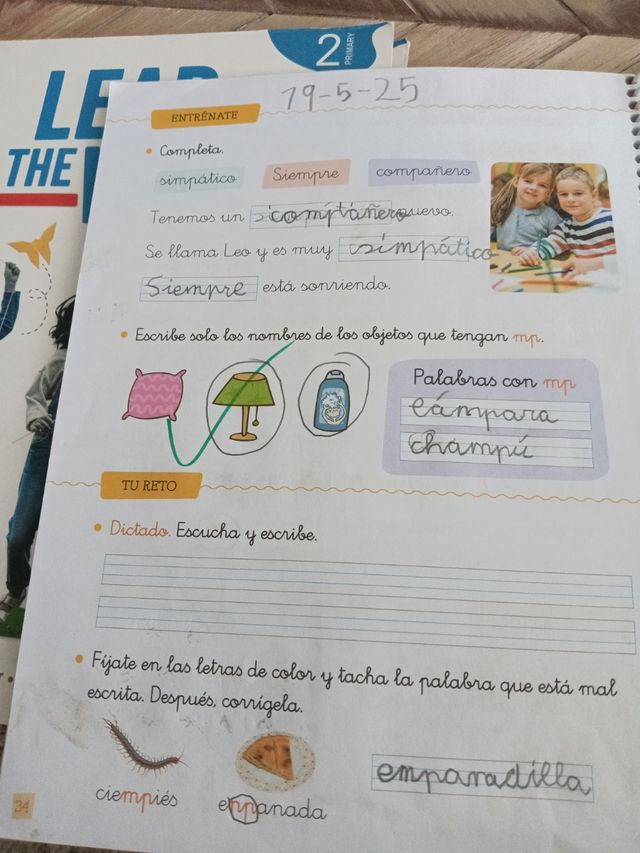 2
PRIMARY
LEAD
THE
19-5-25
ENTRÉNATE
Completa.
simpático Siempre compañero
Tenemos un comptañero nuevo.
Se llama Leo y es muy simpático
Siempre está sonriendo.
Escribe solo los nombres de los objetos que tengan mp.
Palabras con mp
lámpara
champú
TU RETO
Dictado. Escucha y escribe.
Fíjate en las letras de color y tacha la palabra que está mal
escrita. Después, corrígela.
ciempiés enpanada
emparadilla
34